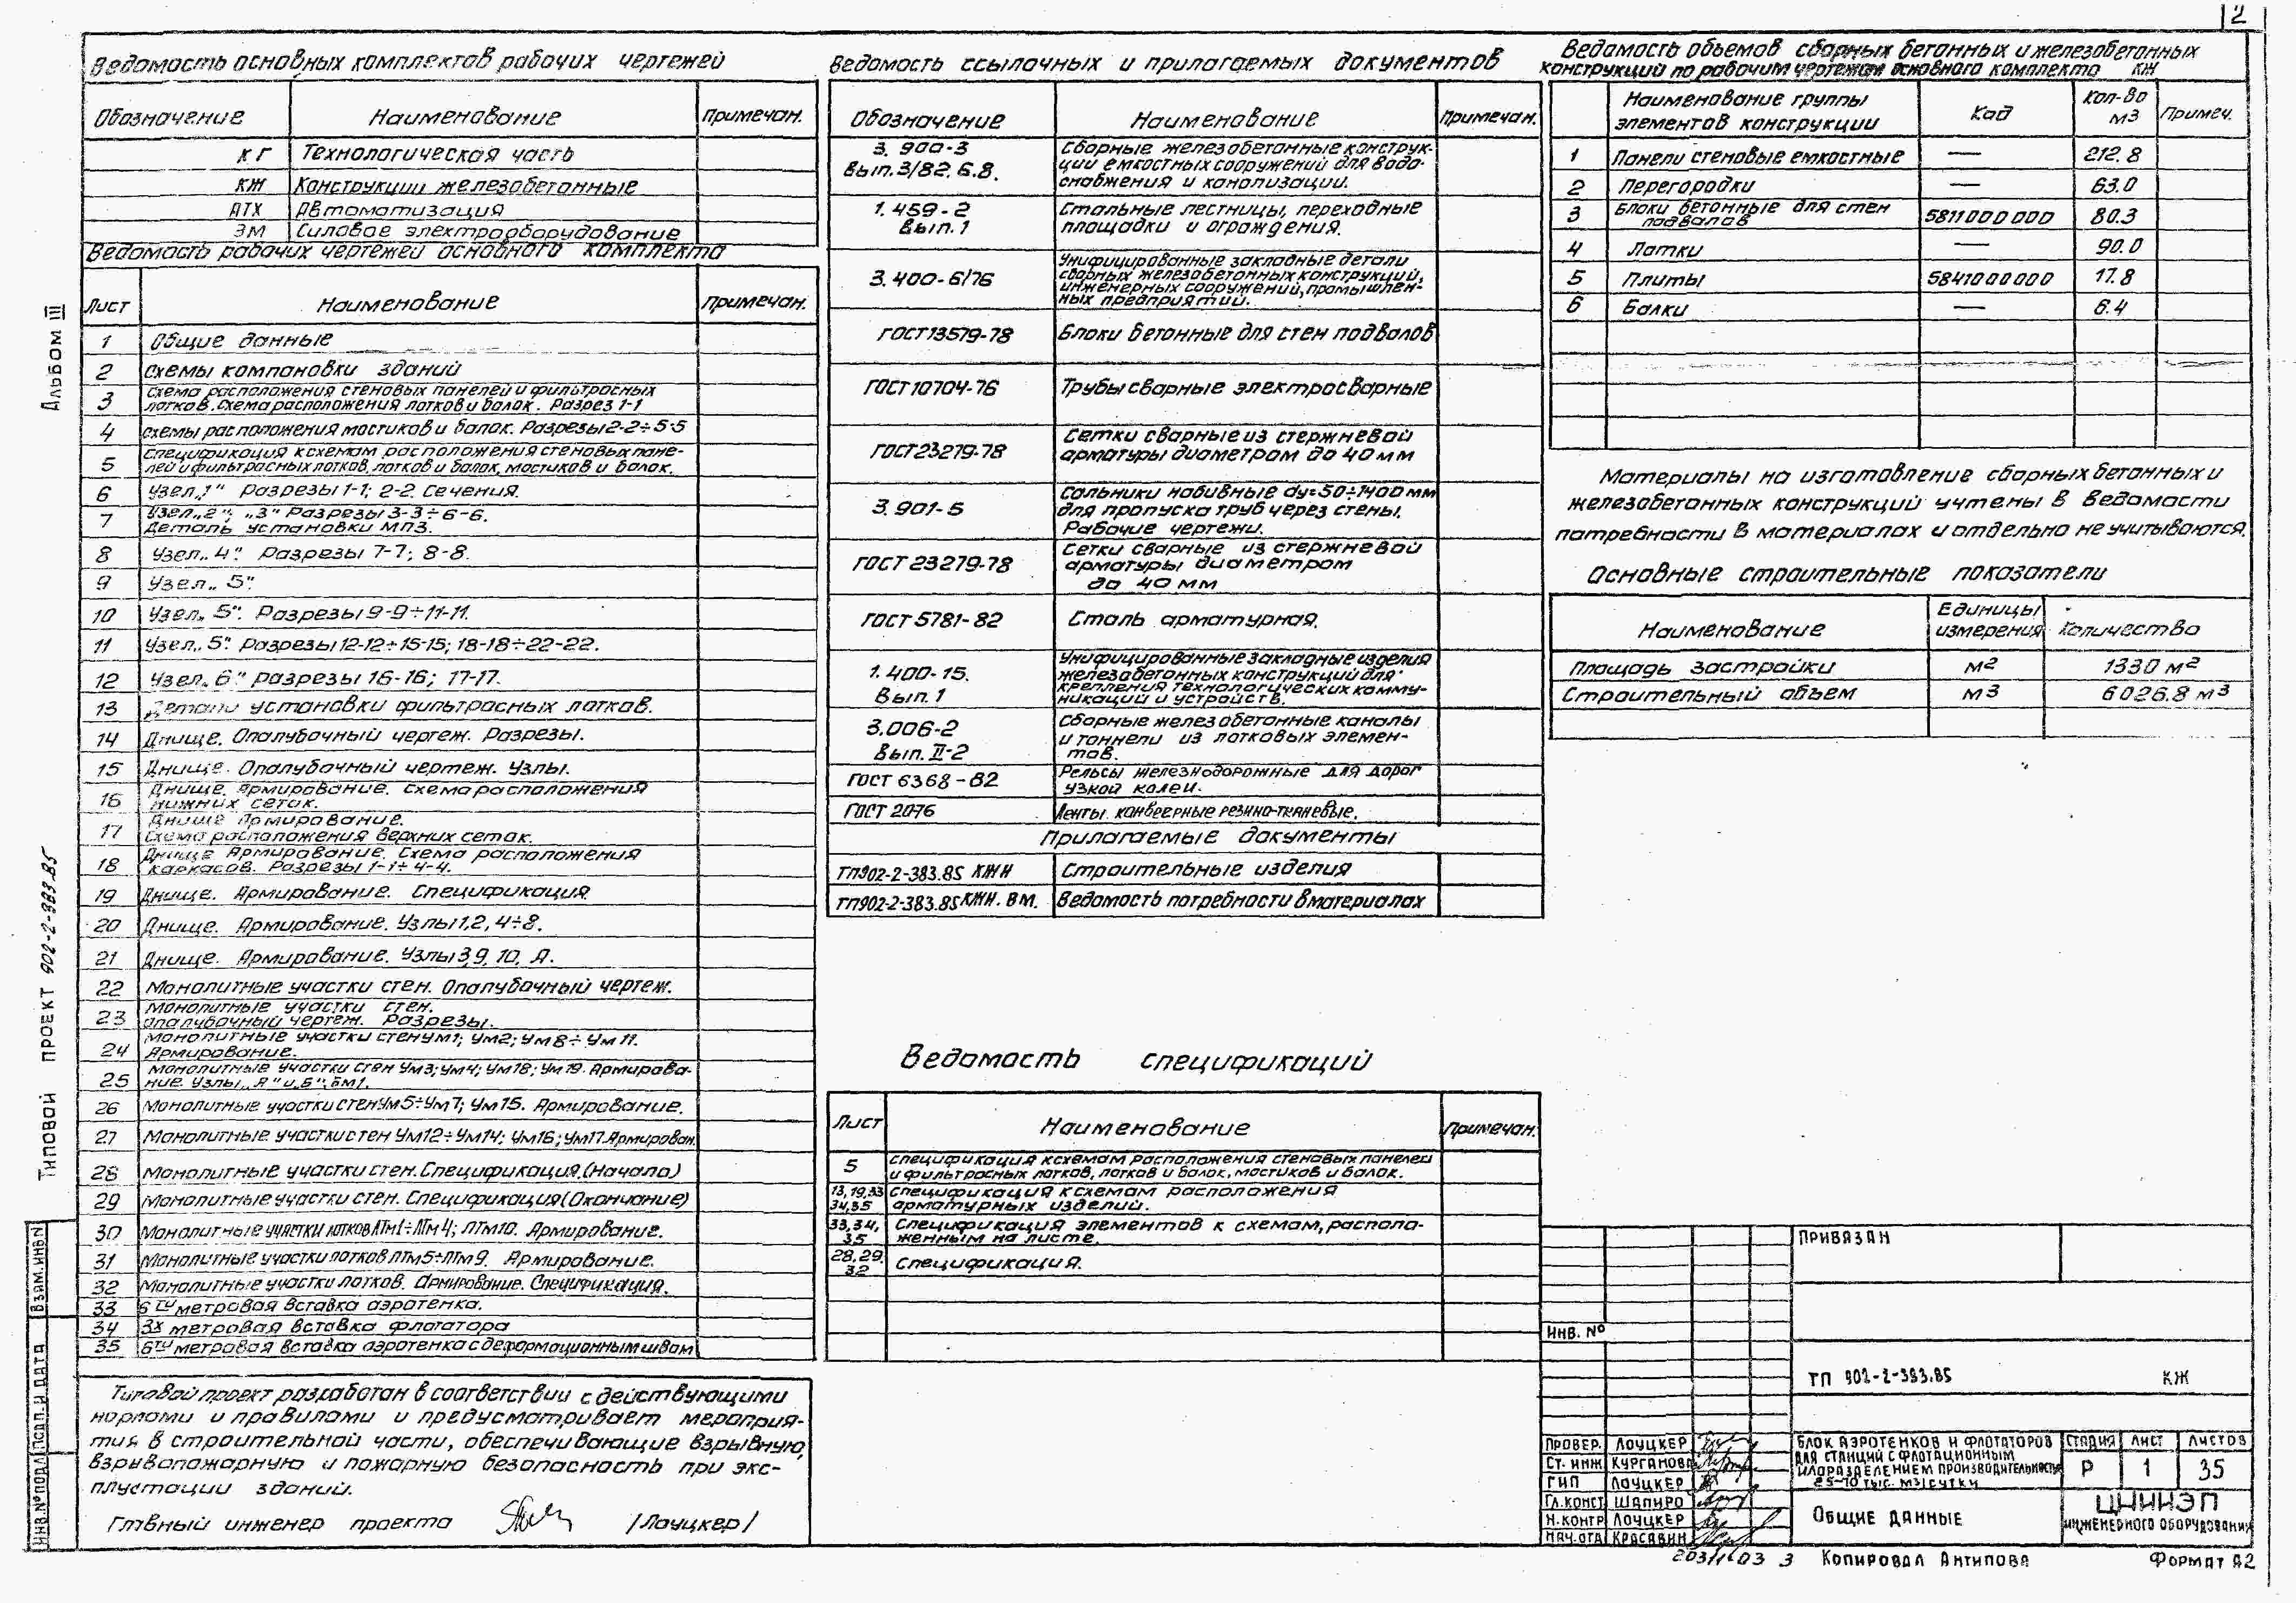 2
Ведомость основных комплектов рабочих чертежей
Обозначение Наименование Примечан.
КГ Технологическая часть
КЖ Конструкции железобетонные
АТХ Автоматизация
ЭМ Силовое электрооборудование
Ведомость рабочих чертежей основного комплекта
Лист Наименование Примечан.
1 Общие данные
2 Схемы компановки зданий
3 Схема расположения стеновых панелей и фильтросных
лотков. Схема расположения лотков и балок. Разрез 1-1
4 Схемы расположения мостиков и балок. Разрезы 2-2÷5-5
5 Спецификация к схемам расположения стеновых пане-
лей и фильтросных лотков, лотков и балок, мостиков и балок.
6 Узел „1" Разрезы 1-1; 2-2. Сечения.
7 Узел „2"; „3" Разрезы 3-3÷6-6.
Деталь установки МПЗ.
8 Узел „4". Разрезы 7-7; 8-8.
9 Узел „5".
10 Узел „5". Разрезы 9-9÷11-11.
11 Узел „5". Разрезы 12-12÷15-15; 18-18÷22-22.
12 Узел „6" разрезы 16-16; 17-17.
13 Детали установки фильтросных лотков.
14 Днище. Опалубочный чертеж. Разрезы.
15 Днище. Опалубочный чертеж. Узлы.
16 Днище. Армирование. Схема расположения
нижних сеток.
17 Днище Армирование.
Схема расположения верхних сеток.
18 Днище Армирование. Схема расположения
каркасов. Разрезы 1-1÷4-4.
19 Днище. Армирование. Спецификация.
20 Днище. Армирование. Узлы 1,2, 4÷8.
21 Днище. Армирование. Узлы 3,9, 10, А.
22 Монолитные участки стен. Опалубочный чертеж.
23 Монолитные участки стен.
опалубочный чертеж. Разрезы.
24 Монолитные участки стен Ум1; Ум2; Ум8÷Ум11.
Армирование.
25 Монолитные участки стен Ум3; Ум4; Ум18; Ум19. Армирова-
ние. Узлы „А" и „Б"; Бм1.
26 Монолитные участки стен Ум5÷Ум7; Ум15. Армирование.
27 Монолитные участки стен Ум12÷Ум14; Ум16; Ум17. Армирован.
28 Монолитные участки стен. Спецификация. (Начало)
29 Монолитные участки стен. Спецификация (Окончание)
30 Монолитные участки лотков ЛТм1÷ЛТм4; ЛТм10. Армирование.
31 Монолитные участки лотков ЛТм5÷ЛТм9. Армирование.
32 Монолитные участки лотков. Армирование. Спецификация.
33 6ти метровая вставка аэротенка.
34 3х метровая вставка флотатора
35 6ти метровая вставка аэротенка с деформационным швом
Типовой проект разработан в соответствии с действующими
нормами и правилами и предусматривает мероприя-
тия в строительной части, обеспечивающие взрывную,
взрывопожарную и пожарную безопасность при экс-
плустации зданий.
Главный инженер проекта /Лоуцкер/
Ведомость ссылочных и прилагаемых документов
Обозначение Наименование Примечан.
3.900-3 Сборные железобетонные конструк-
вып. 3/82, 6.8. ции емкостных сооружений для водо-
снабжения и канализации.
1.459-2 Стальные лестницы, переходные
вып. 1 площадки и ограждения.
3.400-6/76 Унифицированные закладные детали
сборных железобетонных конструкций,
инженерных сооружений, промышлен-
ных предприятий.
ГОСТ 13579-78 Блоки бетонные для стен подвалов
ГОСТ 10704-76 Трубы сварные электросварные
ГОСТ 23279-78 Сетки сварные из стержневой
арматуры диаметром до 40 мм
3.901-5 Сальники набивные dу=50÷1400 мм
для пропуска труб через стены.
Рабочие чертежи.
ГОСТ 23279-78 Сетки сварные из стержневой
арматуры диаметром
до 40 мм
ГОСТ 5781-82 Сталь арматурная.
1.400-15. Унифицированные закладные изделия
вып. 1 железобетонных конструкций для
крепления технологических комму-
никаций и устройств.
3.006-2 Сборные железобетонные каналы
вып. II-2 и тоннели из лотковых элемен-
тов.
ГОСТ 6368-82 Рельсы железнодорожные для дорог
узкой колеи.
ГОСТ 2076 Ленты конвеерные резино-тканевые.
Прилагаемые документы
ТП902-2-383.85 КЖИ Строительные изделия
ТП902-2-383.85 КЖИ. ВМ. Ведомость потребности в материалах
Ведомость спецификаций
Лист Наименование Примечан.
5 Спецификация к схемам расположения стеновых панелей
и фильтросных лотков, лотков и балок, мостиков и балок.
13, 19, 33 Спецификация к схемам расположения
34,35 арматурных изделий.
33,34, Спецификация элементов к схемам, располо-
35 женным на листе.
28,29. Спецификация.
32
Ведомость объемов сборных бетонных и железобетонных
конструкций по рабочим чертежам основного комплекта КЖ
Наименование группы элементов конструкции Код Кол-во м3 Примеч.
1 Панели стеновые емкостные — 212.8
2 Перегородки — 63.0
3 Блоки бетонные для стен подвалов 5811000000 80.3
4 Лотки — 90.0
5 Плиты 5841000000 17.8
6 Балки — 6.4
Материалы на изготовление сборных бетонных и
железобетонных конструкций учтены в ведомости
потребности в материалах и отдельно не учитываются.
Основные строительные показатели
Наименование Единицы измерения Количество
Площадь застройки м2 1330 м2
Строительный объем м3 6026.8 м3
Привязан
Инв. №
ТП 902-2-383.85 КЖ
Провер. Лоуцкер
Ст. инж Курганова
ГИП Лоуцкер
Гл. конст Шапиро
Н. контр Лоуцкер
Нач. отд Красавин
Блок аэротенков и флотаторов
для станций с флотационным
илоразделением производительностью
25-70 тыс. м3/сутки
Стадия Лист Листов
Р 1 35
Общие данные
ЦНИИЭП
инженерного оборудования
3 Копировал Антипова Формат А2
Альбом III
Типовой проект 902-2-383.85
Взам. инв N
Подп. и дата
Инв. № подл